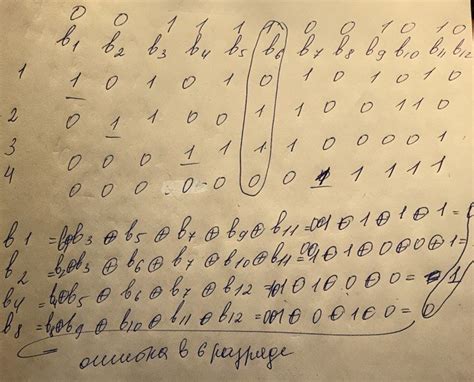 0 0 1 1 1 1 0 0 1 0 1 0
b1 b2 b3 b4 b5 b6 b7 b8 b9 b10 b11 b12
1 1 0 1 0 1 0 1 0 1 0 1 0
2 0 1 1 0 0 1 1 0 0 1 1 0
3 0 0 0 1 1 1 1 0 0 0 0 1
4 0 0 0 0 0 0 0 1 1 1 1 1
b1 = b3 ⊕ b5 ⊕ b7 ⊕ b9 ⊕ b11 =
b2 = b3 ⊕ b6 ⊕ b7 ⊕ b10 ⊕ b11 =
b4 = b5 ⊕ b6 ⊕ b7 ⊕ b12 =
b8 = b9 ⊕ b10 ⊕ b11 ⊕ b12 =
ошибка в 6 разряде